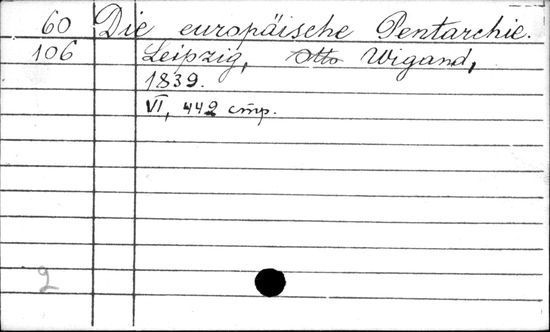 60 Die europäische Pentarchie.
106 Leipzig, Otto Wigand,
1839.
VI, 442 стр.
2